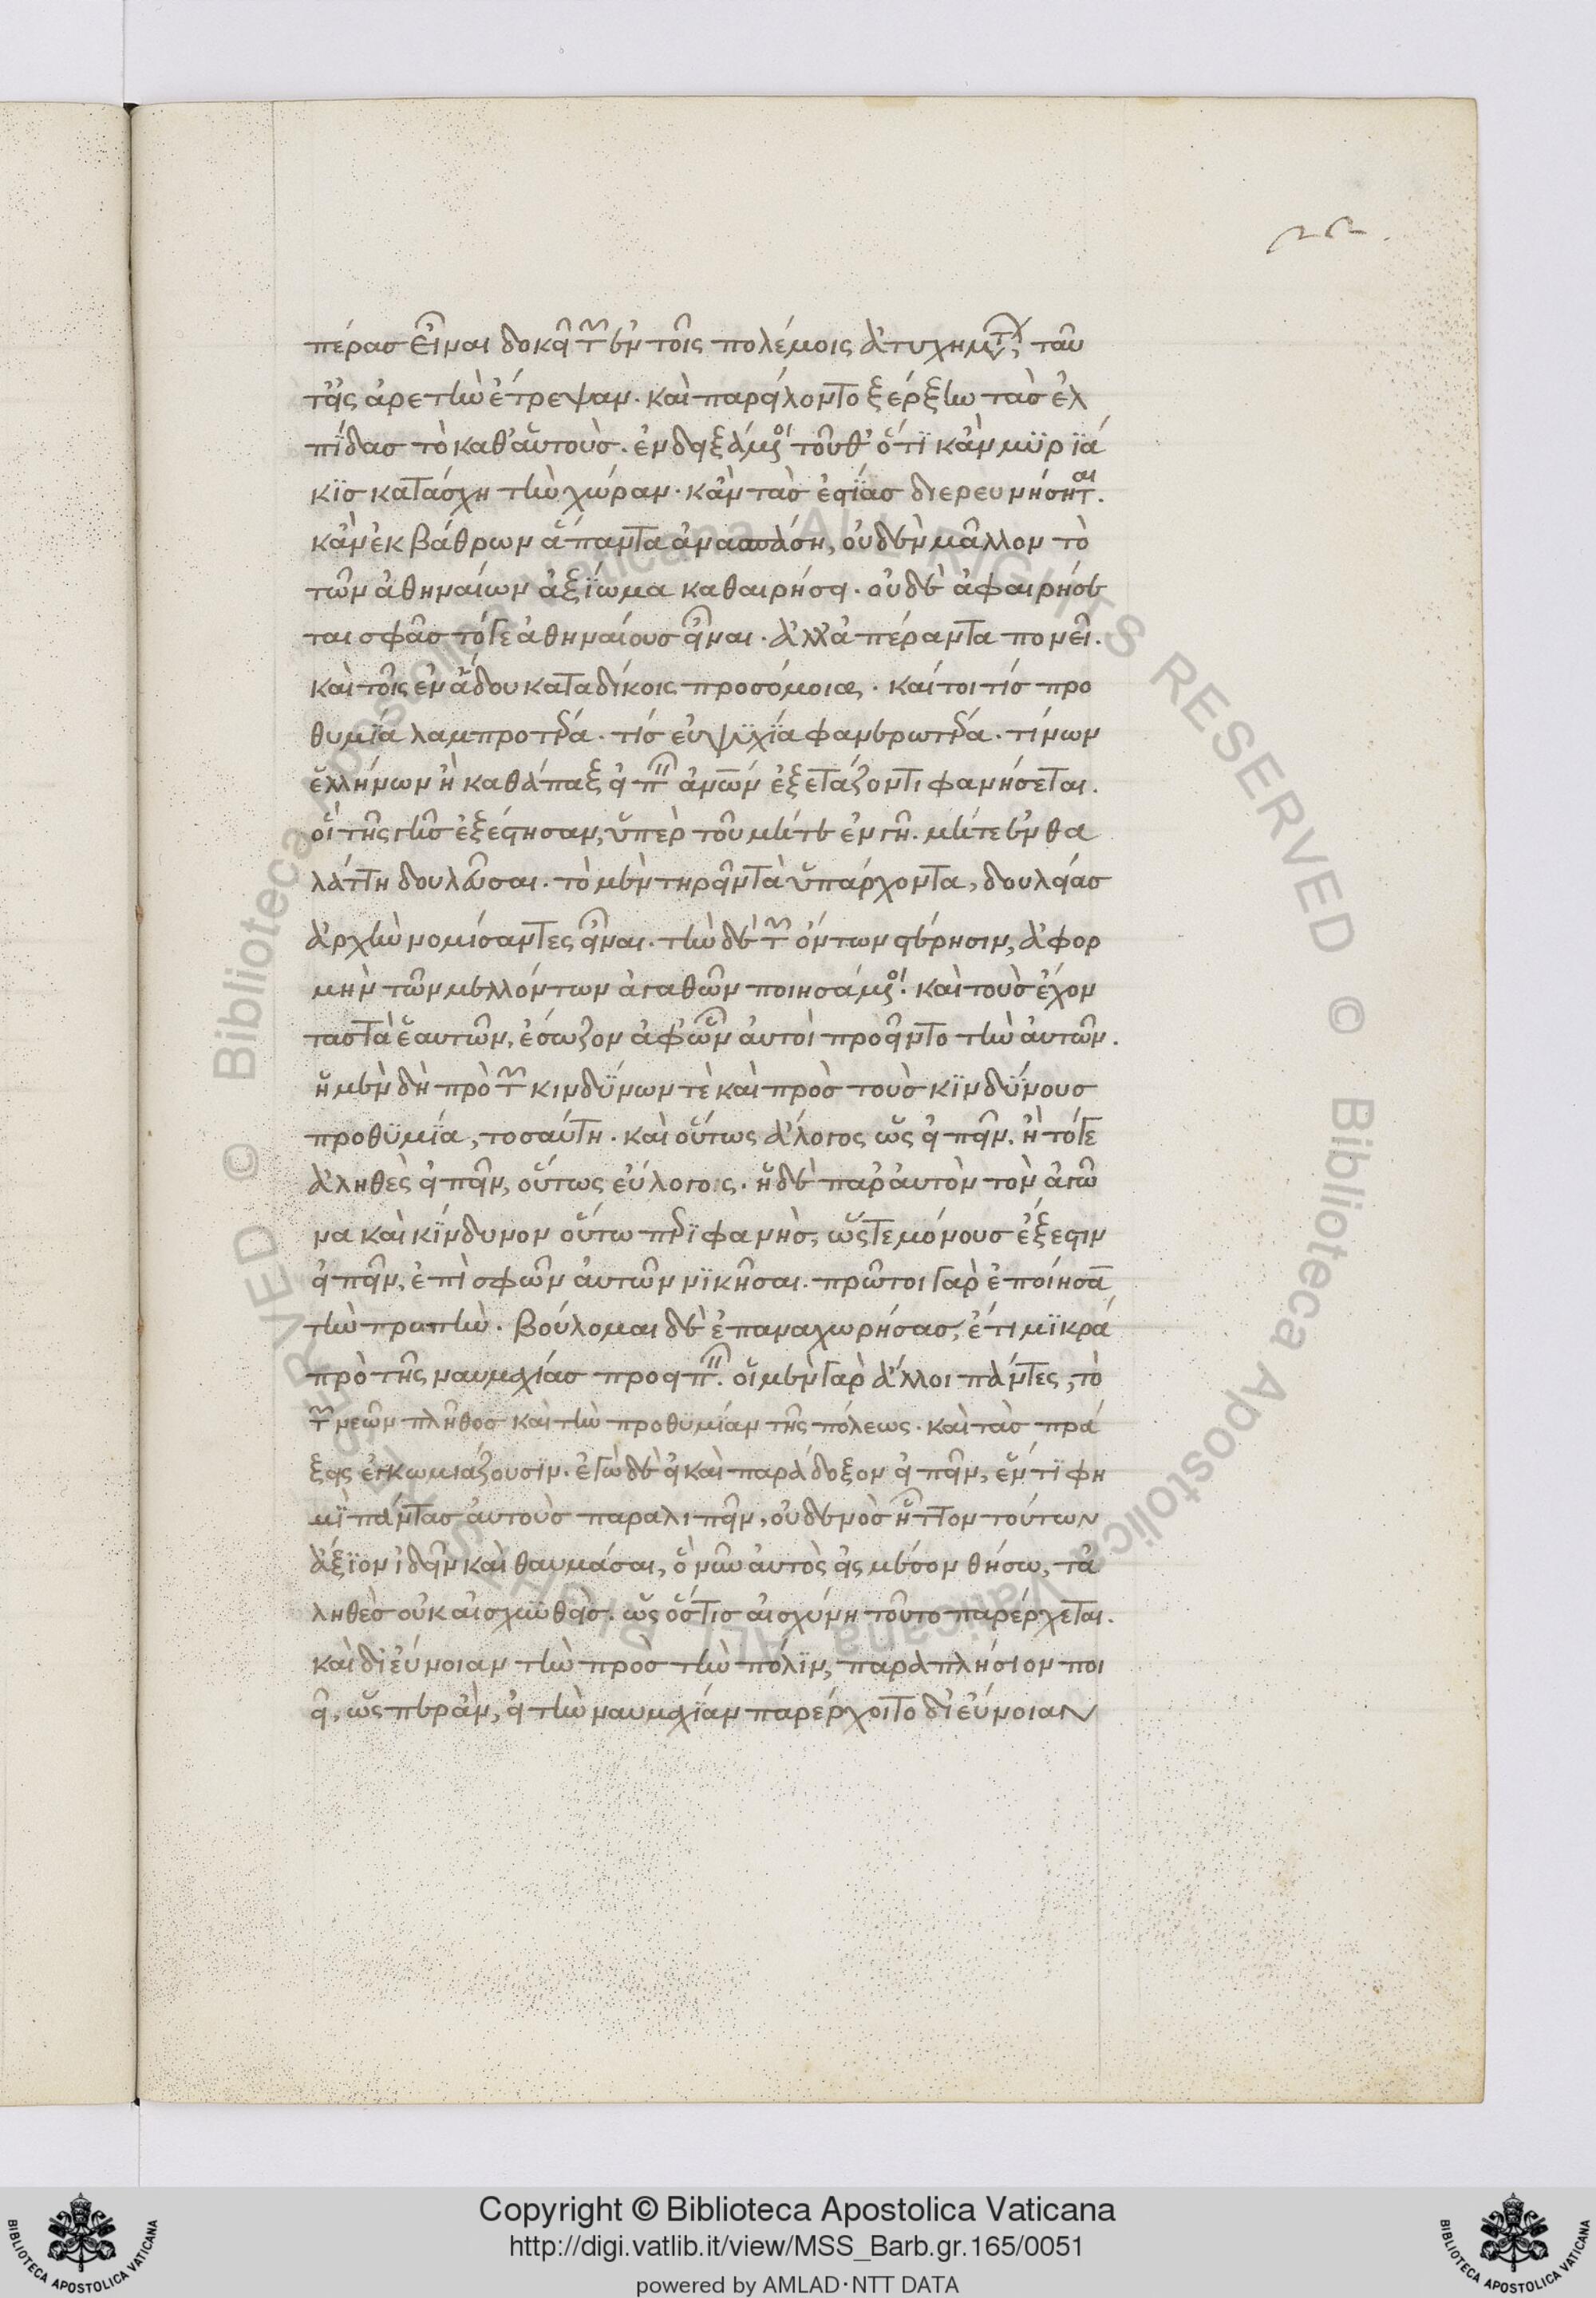 πέρασ εἶναι δοκεῖ τῶν ἐν τοῖς πολέμοις ἀτυχημάτων, ταύ
της ἀρετὴν ἔτρεψαν. καὶ παρείλοντο ξέρξην τὰσ ἐλ
πίδασ τὸ καθ' αὑτοὺσ. ἐνδειξάμενοι τοῦθ' ὅτϊ κἂν μϋρϊά
κϊσ κατάσχη τὴν χώραν. κἂν τὰσ ἑστίασ διερευνήσηται.
κἂν ἐκ βάθρων ἅπαντα ἀνασπάση, οὐδὲν μᾶλλον τὸ
τῶν ἀθηναίων ἀξϊωμα καθαιρήσει. οὐδὲ ἀφαιρήσε
ται σφᾶσ τό γε ἀθηναίουσ εἶναι. ἀλλ' ἀπέραντα πονεῖ.
καὶ τοῖς ἐν ἅδου καταδίκοις προσόμοια. καίτοι τίσ προ
θυμϊα λαμπροτέρα. τίσ εὐψϋχϊα φανερωτέρα. τίνων
ἑλλήνων ἢ καθάπαξ εἰπεῖν ἀνῶν ἐξετάζοντι φανήσεται.
οἳ τῆς γῆσ ἐξέστησαν, ὑπὲρ τοῦ μήτε ἐν γῆ. μήτε ἐν θα
λάττη δουλεῦσαι. τὸ μὲν τηρεῖν τὰ ὑπάρχοντα, δουλείασ
ἀρχὴν νομίσαντες εἶναι. τὴν δὲ τῶν ὄντων στέρησιν, ἀφορ
μὴν τῶν μελλόντων ἀγαθῶν ποιησάμενοι. καὶ τοὺσ ἔχον
τασ τὰ ἑαυτῶν, ἔσωζον ἀφ' ὧν αὐτοὶ προεῖντο τὴν αὐτῶν.
ἡ μὲν δὴ πρὸ τῶν κινδϋνων τὲ καὶ πρὸς τοὺσ κϊνδϋνουσ
προθϋμϊα, τοσαύτη. καὶ οὕτως ἄλογος ὡς εἰπεῖν. ἢ τό γε
ἀληθὲς εἰπεῖν, οὕτως εὔλογος. ἡ δὲ παρ' αὐτὸν τὸν ἀγῶ
να καὶ κϊνδυνον οὕτω περϊφανὴς, ὥστε μόνουσ ἔξεστιν
εἰπεῖν, ἐπὶ σφῶν αὐτῶν νϊκῆσαι. πρῶτοι γὰρ ἐποίησαν
τὴν τροπὴν. βούλομαι δὲ ἐπαναχωρήσασ, ἔτι μϊκρά
πρὸ τῆς ναυμαχίασ προειπεῖν. οἱ μὲν γὰρ ἄλλοι πάντες, τὸ
τῶν νεῶν πλῆθοσ καὶ τὴν προθϋμίαν τῆς πόλεως. καὶ τὰσ πρά
ξεις ἐγκωμιάζουσϊν. ἐγὼ δὲ εἰ καὶ παράδοξον εἰπεῖν, ἕν τϊ φη
μϊ πάντασ αὐτοὺσ παραλιπεῖν, οὐδενὸσ ἧττον τούτων
ἄξϊον ἰδεῖν καὶ θαυμάσαι, ὃ νῦν αὐτὸς εἰς μέσον θήσω, τἀ
ληθὲσ οὐκ αἰσχυνθεὶσ. ὡς ὅστισ αἰσχύνη τοῦτο παρέρχεται.
καὶ δι' εὔνοιαν τὴν πρὸσ τὴν πόλϊν, παραπλήσιον ποι
εῖ, ὥσπερ ἂν, εἰ τὴν ναυμαχϊαν παρέρχοιτο δι' εὔνοιαν
© Biblioteca Apostolica Vaticana ALL RIGHTS RESERVED © Biblioteca Apostolica Vaticana ALL RIGHTS RESERVED
Copyright © Biblioteca Apostolica Vaticana
http://digi.vatlib.it/view/MSS_Barb.gr.165/0051
powered by AMLAD·NTT DATA
BIBLIOTECA APOSTOLICA VATICANA
BIBLIOTECA APOSTOLICA VATICANA